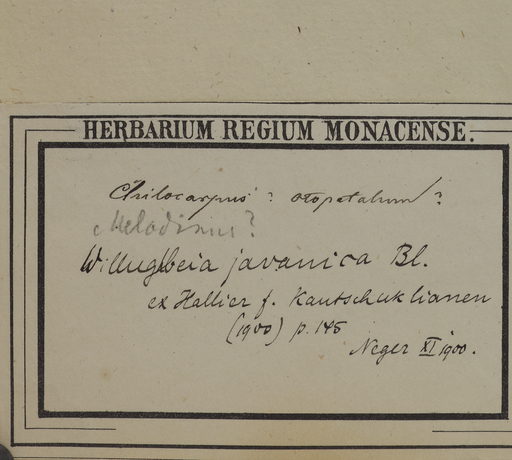 HERBARIUM REGIUM MONACENSE.
Chilocarpus? otopetalum?
Melodinus?
Willughbeia javanica Bl.
ex Hallier f. Kautschuklianen
(1900) p. 145
Neger XI 1900.